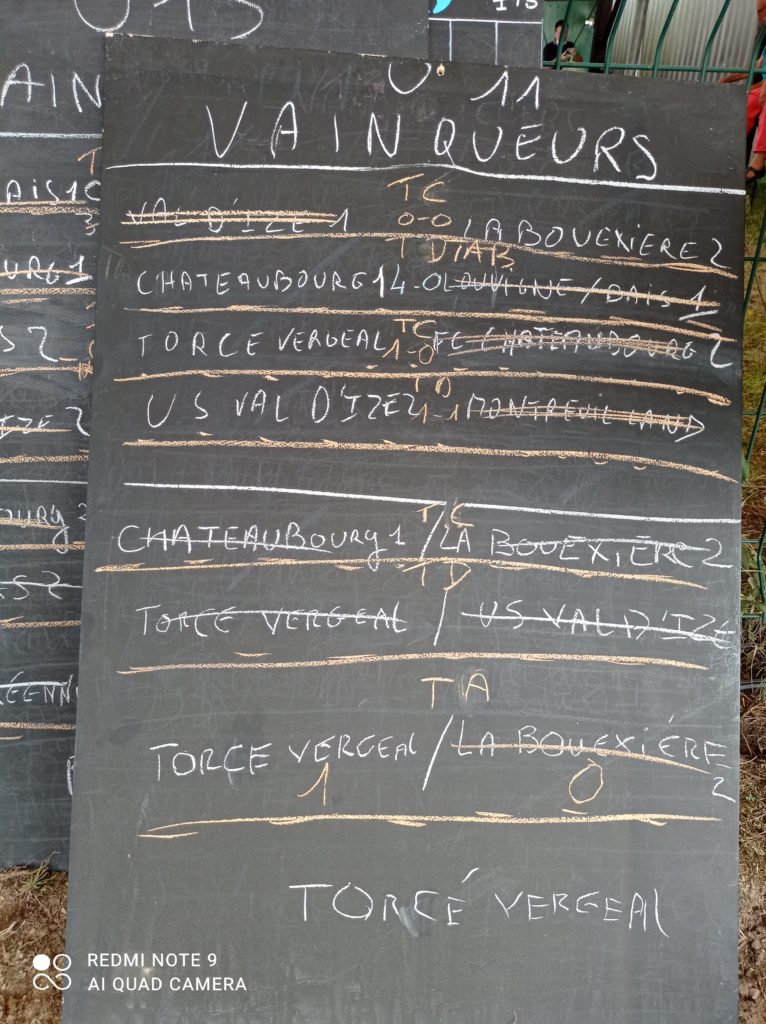 U 13
U 11
VAINQUEURS
TC
VAL D'IZE 1 0-0 LA BOUEXIERE 2
T DIAB
CHATEAUBOURG 1 4-0 LOUVIGNE/BAIS 1
TC
TORCE VERGEAL 1-0 FC CHATEAUBOURG 2
TD
US VAL D'IZE 2 1-1 MONTREUIL LAND
TC
CHATEAUBOURG 1 / LA BOUEXIÈRE 2
TD
TORCÉ VERGEAL / US VAL D'IZÉ
TA
TORCE VERGEAL / LA BOUEXIÉRE
1 0 2
TORCÉ VERGEAL
REDMI NOTE 9
AI QUAD CAMERA